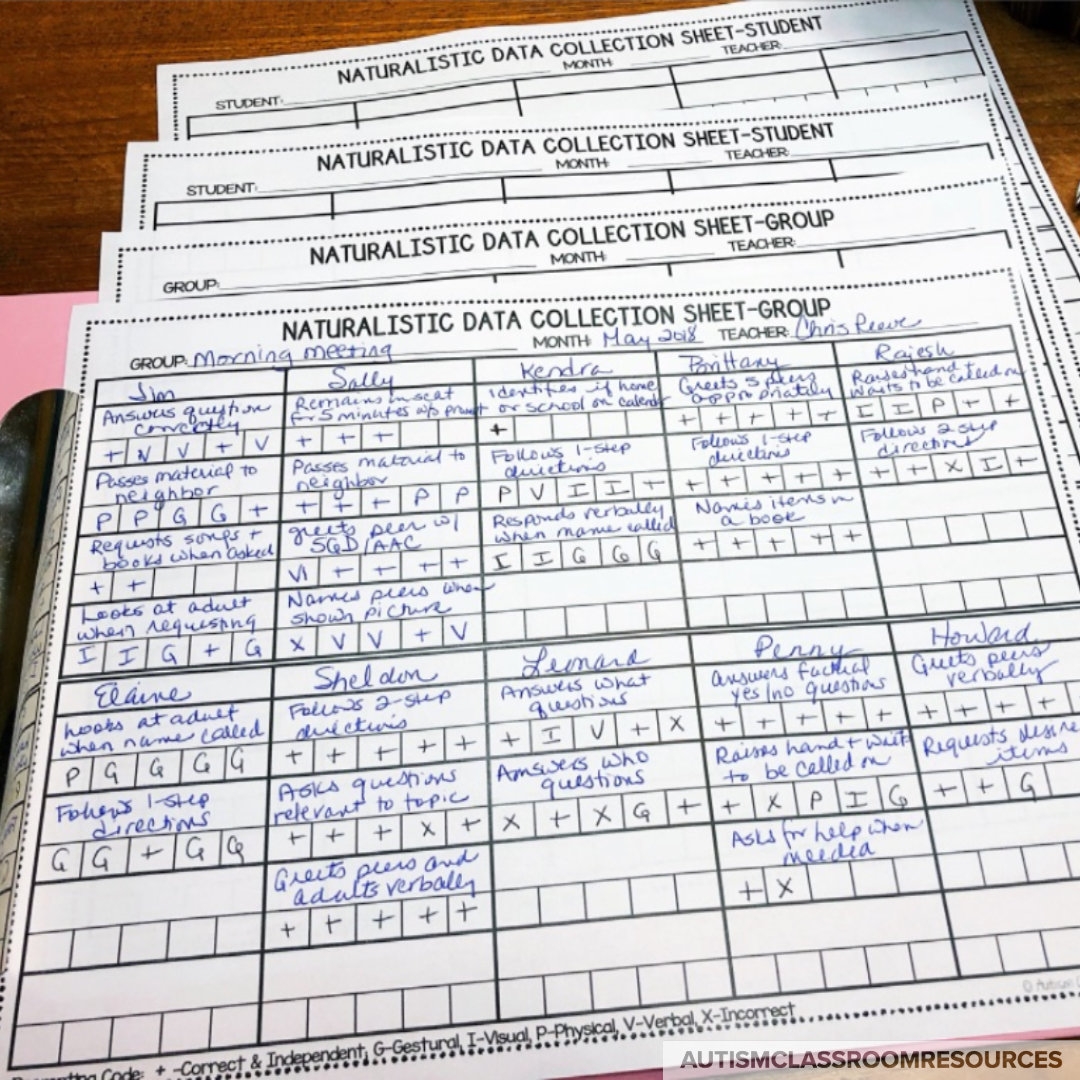 NATURALISTIC DATA COLLECTION SHEET-STUDENT
STUDENT: MONTH: TEACHER:
NATURALISTIC DATA COLLECTION SHEET-STUDENT
STUDENT: MONTH: TEACHER:
NATURALISTIC DATA COLLECTION SHEET-GROUP
GROUP: MONTH: TEACHER:
NATURALISTIC DATA COLLECTION SHEET-GROUP
GROUP: Morning meeting MONTH: May 2018 TEACHER: Chris Reeve
Jim
Answers question
correctly
+ V V + V
Passes material to
neighbor
P P G G +
Requests songs +
books when asked
+ +
Looks at adult
when requesting
I I G + G
Sally
Remains in seat
for 5 minutes w/o prompt
+ + +
Passes material to
neighbor
+ + + P P
Greets peer w/
SGD/AAC
VI + + + +
Names peers when
shown picture
X V V + V
Kendra
Identifies if home
or school on calendar
+
Follows 1-step
directions
P V I I +
Responds verbally
when name called
I I G G G
Brittany
Greets 5 peers
appropriately
+ + + + +
Follows 1-step
directions
+ + + + +
Names items in
a book
+ + + + +
Rajesh
Raises hand +
waits to be called on
I I P + +
Follows 2-step
directions
+ + X I +
Elaine
Looks at adult
when name called
P G G G G
Follows 1-step
directions
G G + G G
Sheldon
Follows 2-step
directions
+ + + + +
Asks questions
relevant to topic
+ + + X +
Greets peers and
adults verbally
+ + + + +
Leonard
Answers what
questions
+ I V + X
Answers who
questions
X + X G +
Penny
Answers factual
yes/no questions
+ + + + +
Raises hand + wait
to be called on
+ X P I G
Asks for help when
needed
+ X
Howard
Greets peers
verbally
+ + + +
Requests desire
items
+ + G
Code: + -Correct & Independent, G-Gestural, I-Visual, P-Physical, V-Verbal, X-Incorrect
© Autism
AUTISMCLASSROOMRESOURCES